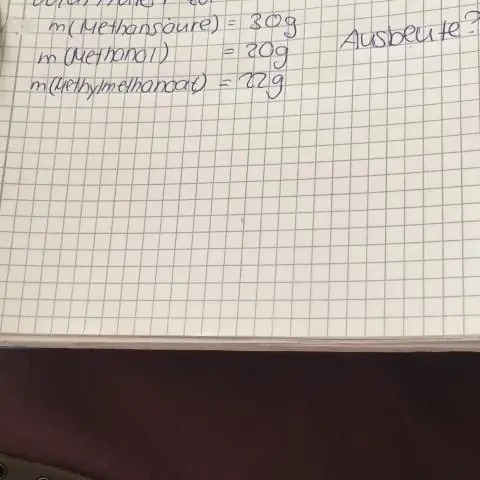 m(Methansäure) = 30g
Ausbeute?
m(Methanol) = 20g
m(Methylmethanoat) = 22g